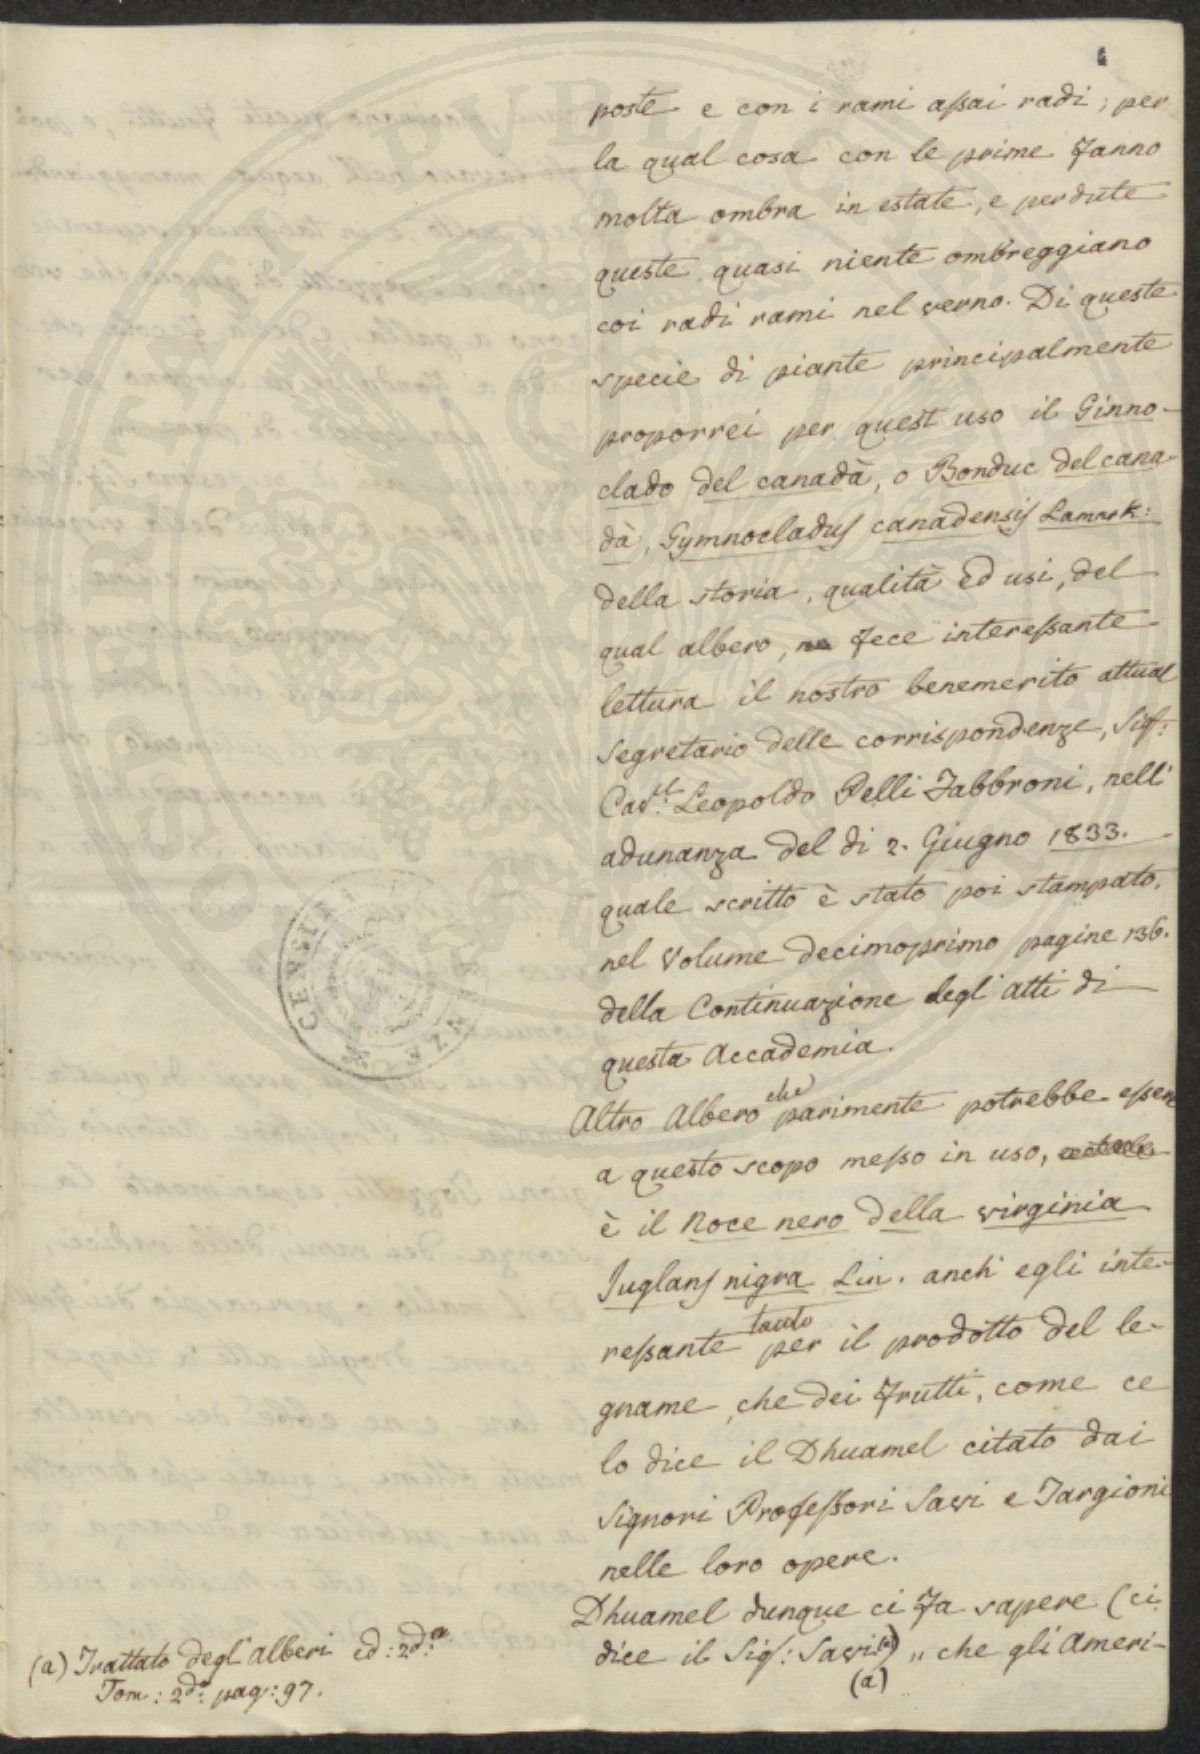 poste e con i rami assai radi; per
la qual cosa con le prime fanno
molta ombra in estate, e perdute
queste, quasi niente ombreggiano
coi radi rami nel verno. Di queste
specie di piante principalmente
proporrei per quest uso il Ginno-
clado del canadà, o Bonduc del cana-
dà, Gymnocladus canadensis Lamark:
della storia, qualità ed usi, del
qual albero, fece interessante
lettura il nostro benemerito attual
Segretario delle corrispondenze, Sig:
Cav: Leopoldo Pelli Fabbroni, nell'
adunanza del di 2. Giugno 1833.
quale scritto è stato poi stampato,
nel Volume decimoprimo pagine 136.
della Continuazione degl'atti di
questa Accademia.
Altro Albero che parimente potrebbe essere
a questo scopo messo in uso,
è il Noce nero della virginia
Juglans nigra Lin. anch'egli inte-
ressante tanto per il prodotto del le-
gname, che dei frutti, come ce
lo dice il Dhuamel citato dai
Signori Professori Savi e Targioni
nelle loro opere.
Dhuamel dunque ci fa sapere (ci
dice il Sig: Savi) (a) „ che gli Ameri-
(a) Trattato degl'alberi ed: 2da
Tom: 2do pag: 97.
CENSIMENTO